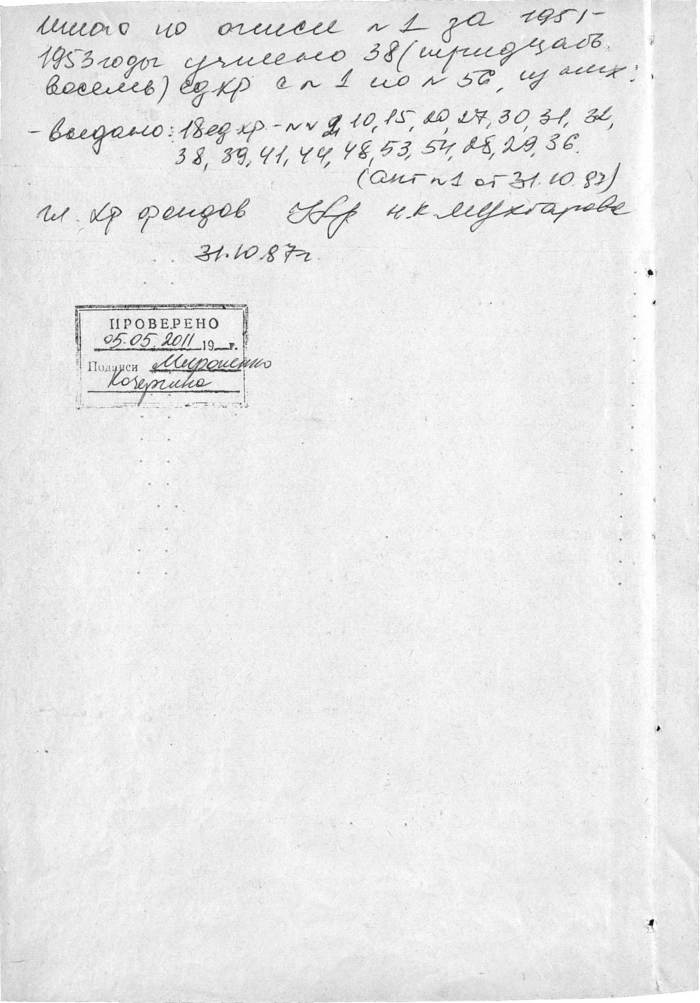 Итого по описи n 1 за 1951-
1953 годы учтено 38 (тридцать
восемь) ед хр с n 1 по n 56, из них:
- выдано: 18 ед хр - n n 2, 10, 15, 20, 27, 30, 31, 32,
38, 39, 41, 44, 48, 53, 54, 28, 29, 36.
(акт n 1 от 31.10.87)
гл. хр фондов Н.К. Мухтарова
31.10.87г.
ПРОВЕРЕНО
05.05.2011 19 г.
Подписи Мироненко
Кочергина